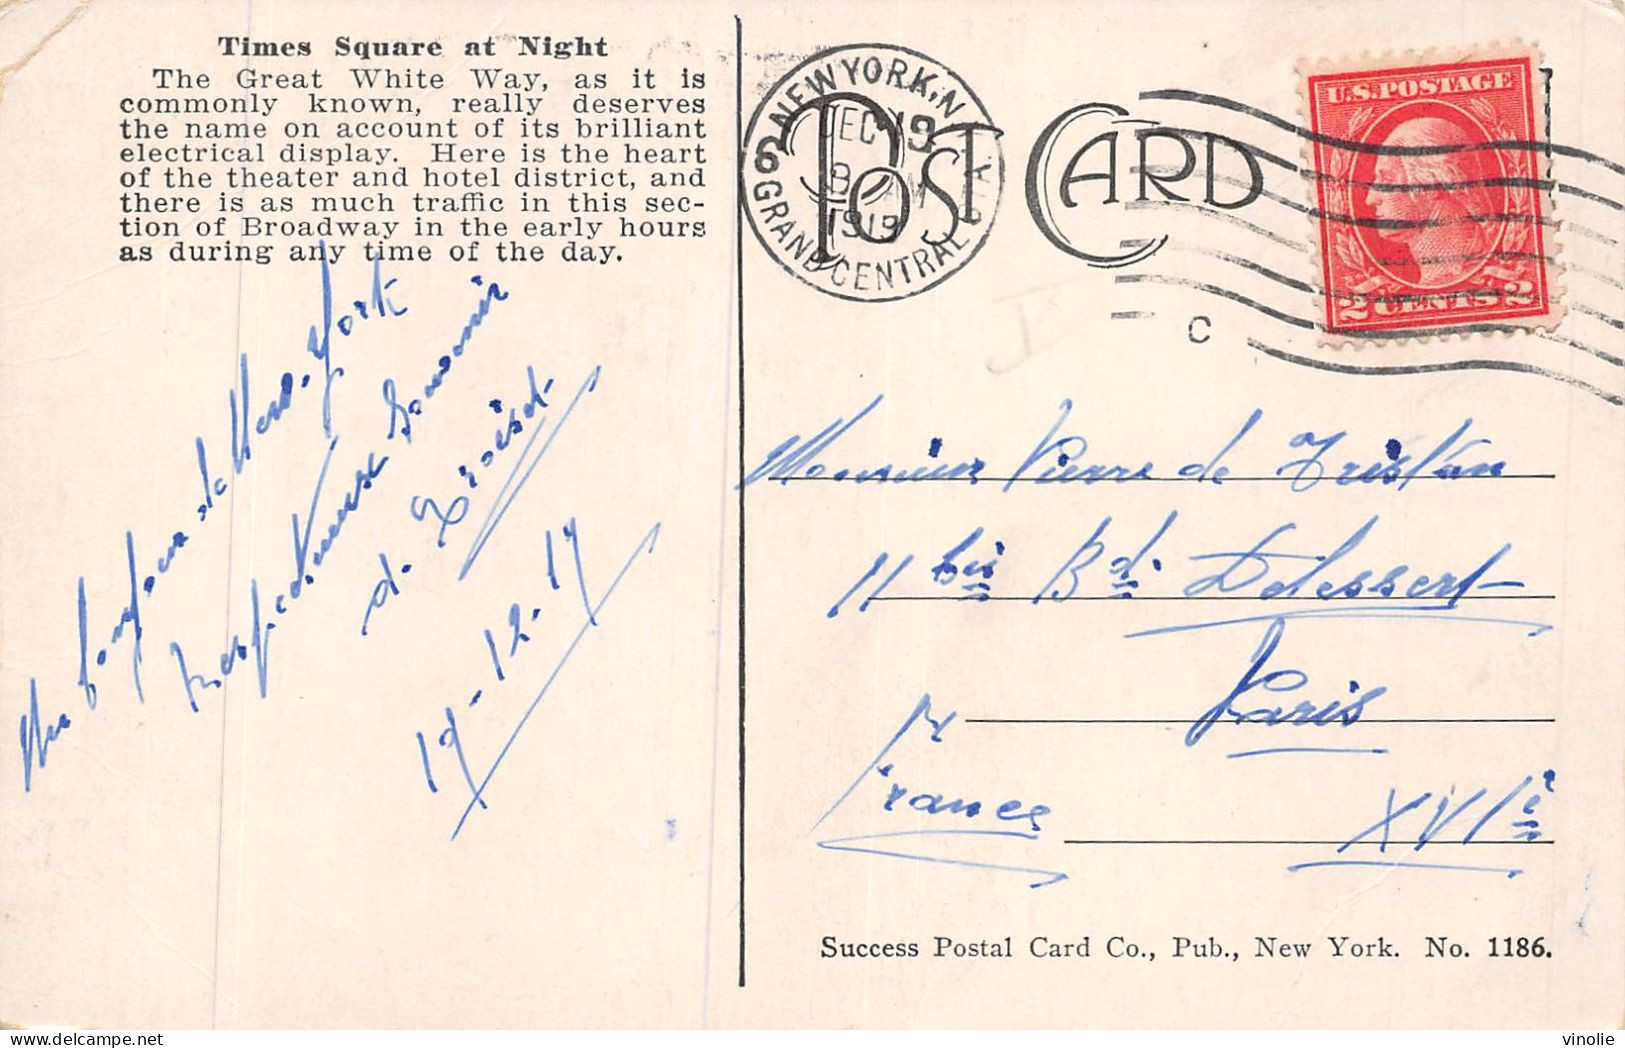 Times Square at Night
The Great White Way, as it is
commonly known, really deserves
the name on account of its brilliant
electrical display. Here is the heart
of the theater and hotel district, and
there is as much traffic in this sec-
tion of Broadway in the early hours
as during any time of the day.
New-York
Respectueux Souvenir
d.
19-12-19
NEW YORK, N.Y.
DEC 19
8 AM
1919
GRAND CENTRAL STA.
C
POST CARD
U.S. POSTAGE
2 CENTS 2
Monsieur Pierre de Tristan
11 bis Bd. Delessert
Paris
France XVIè
Success Postal Card Co., Pub., New York. No. 1186.
vinolie